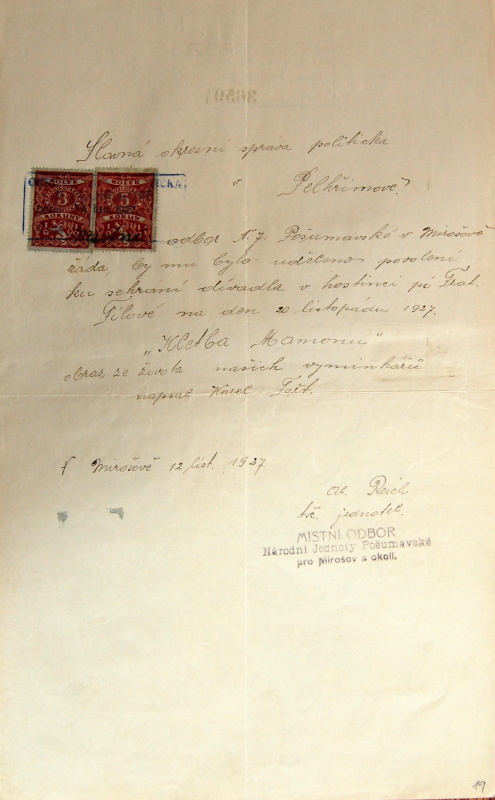 Slavná okresní správa politická
v Pelhřimově!
KOLEK KOLEK
3 5
KORUNY KORUN
odbor N. J. Pošumavské v Mirošově
žádá by mu bylo uděleno povolení
ku sehraní divadla v hostinci pí Frat.
Fílové na den 20 listopádu 1927.
"Kletba Mamonu"
obraz ze života našich vyminkářů
napsal Karel Fořt.
V Mirošově 12 list. 1927
Al. Reich
tč. jednatel.
MÍSTNÍ ODBOR
Národní Jednoty Pošumavské
pro Mirošov a okolí.
19